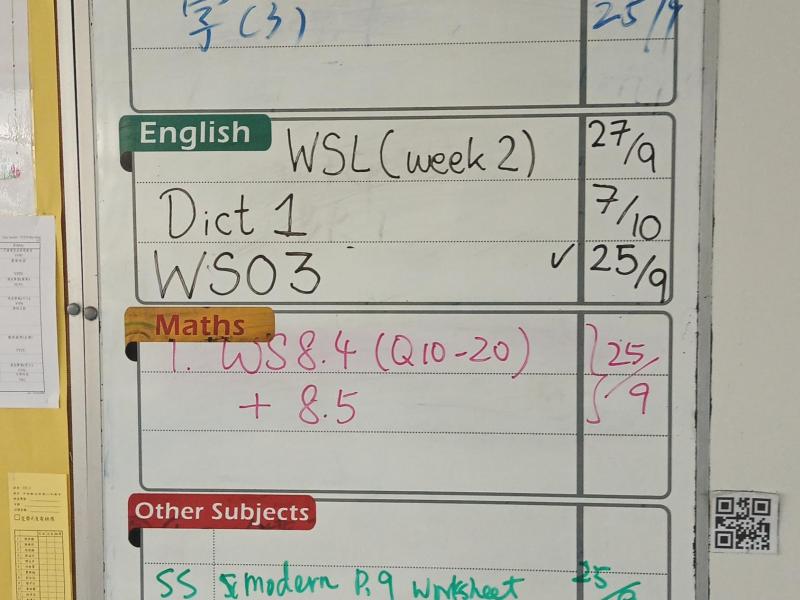 字(3) 25/9
English
WSL (week 2) 27/9
Dict 1 7/10
WS03 ✓ 25/9
Maths
1. WS8.4 (Q10-20) 25/9
+ 8.5
Other Subjects
SS modern P.9 worksheet 25/9